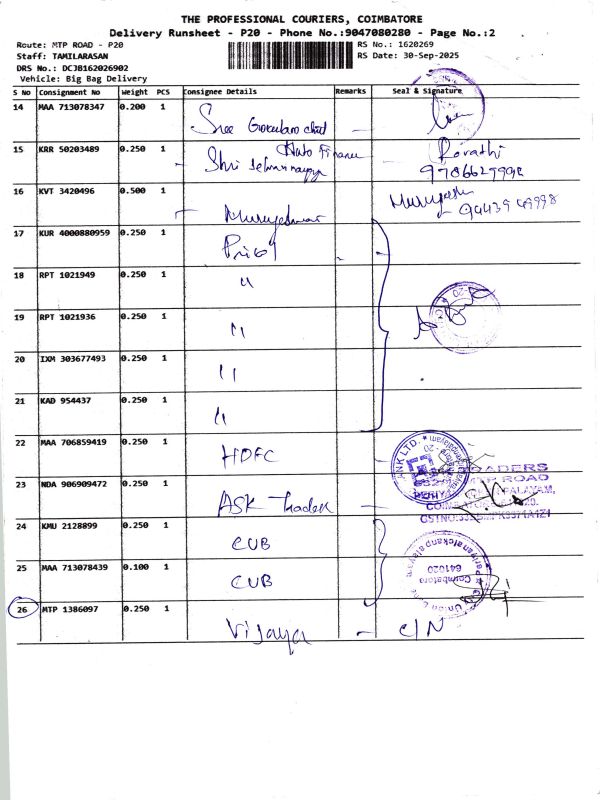 THE PROFESSIONAL COURIERS, COIMBATORE
Delivery Runsheet - P20 - Phone No.:9047080280 - Page No.:2
Route: MTP ROAD - P20
RS No.: 1620269
Staff: TAMILARASAN
RS Date: 30-Sep-2025
DRS No.: DCJB162026902
Vehicle: Big Bag Delivery
S No Consignment No Weight PCS Consignee Details Remarks Seal & Signature
14 MAA 713078347 0.200 1 Sree
15 KRR 50203489 0.250 1 Shri Auto Finance Revathi
9786629998
16 KVT 3420496 0.500 1 Murugeshwar
17 KUR 4000880959 0.250 1 Pricol
18 RPT 1021949 0.250 1 "
19 RPT 1021936 0.250 1 "
20 IXM 303677493 0.250 1 "
21 KAD 954437 0.250 1 "
22 MAA 706859419 0.250 1 HDFC
23 NDA 906909472 0.250 1 ASK Traders
MTP ROAD
24 KMU 2128899 0.250 1 CUB
25 MAA 713078439 0.100 1 CUB
Coimbatore
641020
26 MTP 1386097 0.250 1 Vijaya - C/N